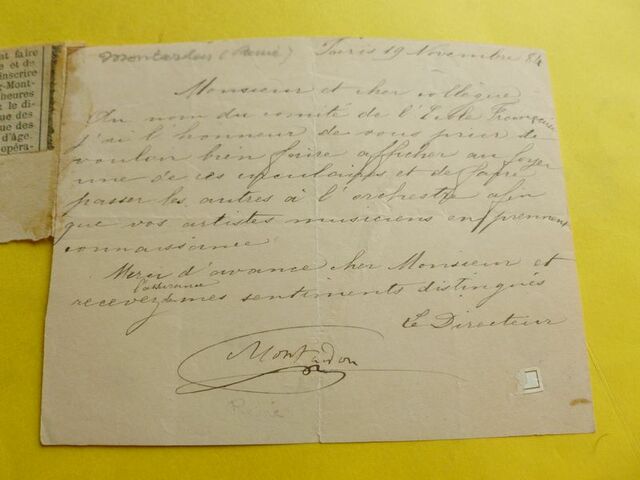 nt faire
e et de
inscrire
g-Mont-
heures
t le di-
que des
ue des
d'âge
opéra-
Montardon (René)
Paris 19 Novembre 84
Monsieur et cher collègue
Au nom du comité de l'Ecole Française
j'ai l'honneur de vous prier de
vouloir bien faire afficher au foyer
une de ces circulaires et de faire
passer les autres à l'orchestre afin
que vos artistes musiciens en prennent
connaissance
Merci d'avance cher Monsieur et
l'assurance
recevez mes sentiments distingués
Le Directeur
Montardon
René